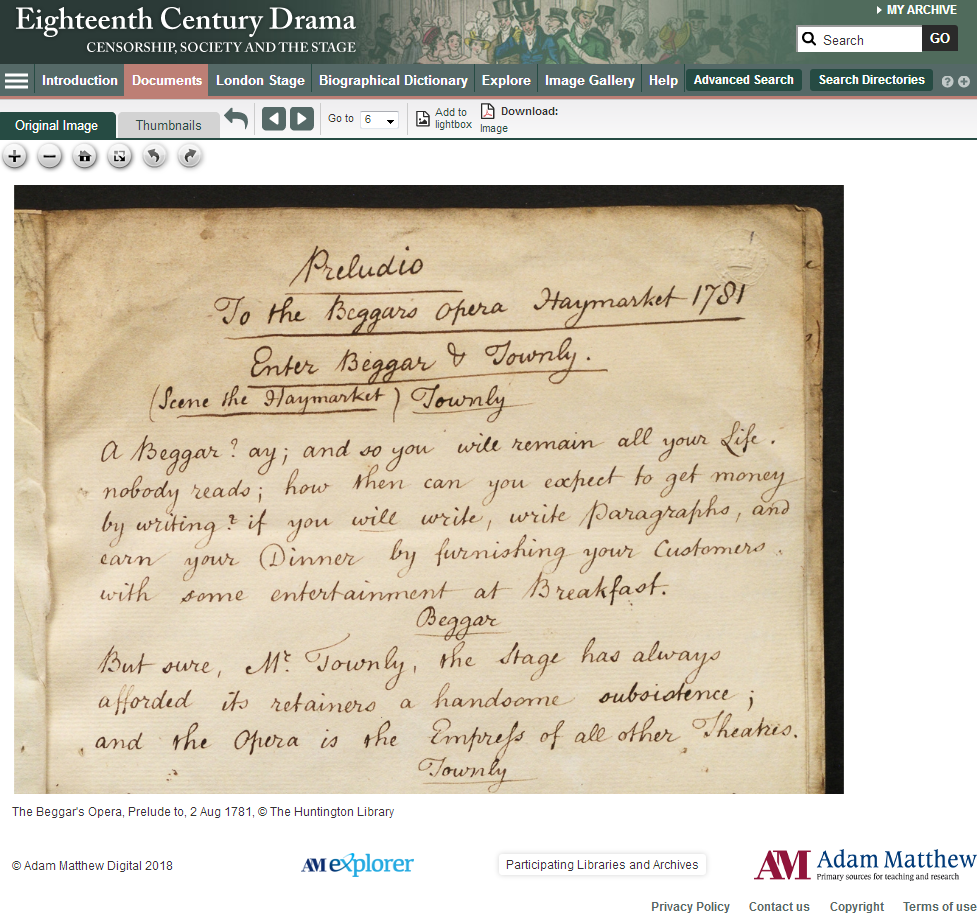 Eighteenth Century Drama
CENSORSHIP, SOCIETY AND THE STAGE
MY ARCHIVE
Search GO
Introduction Documents London Stage Biographical Dictionary Explore Image Gallery Help Advanced Search Search Directories ? +
Original Image Thumbnails Go to 6 Add to lightbox Download: Image
1
Preludio
To the Beggars Opera Haymarket 1781
Enter Beggar & Townly.
(Scene the Haymarket) Townly
A Beggar? ay; and so you will remain all your Life.
nobody reads; how then can you expect to get money
by writing? if you will write, write Paragraphs, and
earn your Dinner by furnishing your Customers.
with some entertainment at Breakfast.
Beggar
But sure, Mr. Townly, the Stage has always
afforded its retainers a handsome subsistence;
and the Opera is the Empreſs of all other Theatres.
Townly
The Beggar's Opera, Prelude to, 2 Aug 1781, © The Huntington Library
© Adam Matthew Digital 2018
AM explorer
Participating Libraries and Archives
AM Adam Matthew
Primary sources for teaching and research
Privacy Policy Contact us Copyright Terms of use